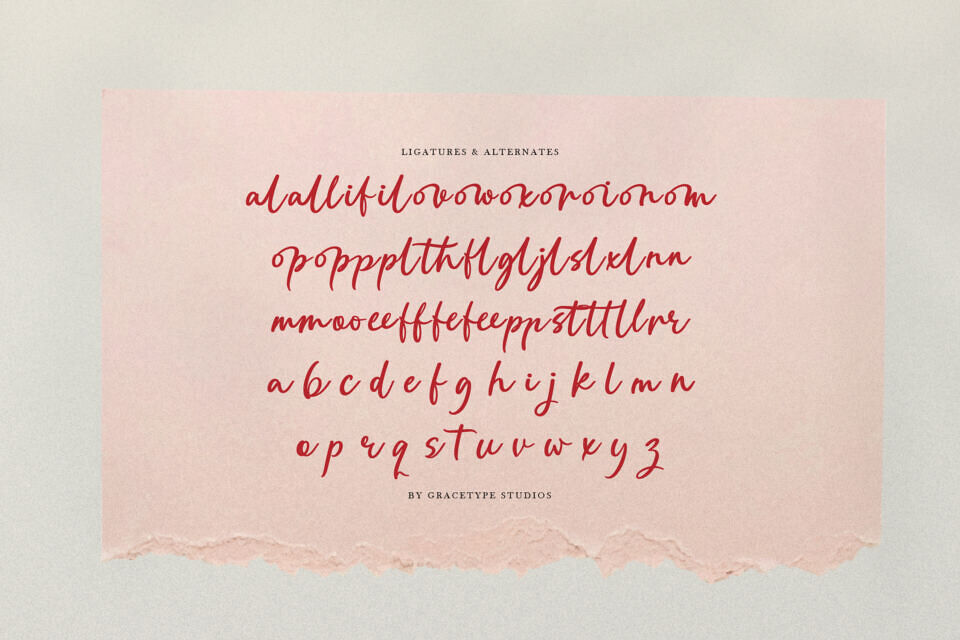 LIGATURES & ALTERNATES
alallifilovowoxoroionom
opopppltthflgljlslxlnn
mmooeefffefeeppstttllrr
a b c d e f g h i j k l m n
o p r q s t u v w x y z
BY GRACETYPE STUDIOS